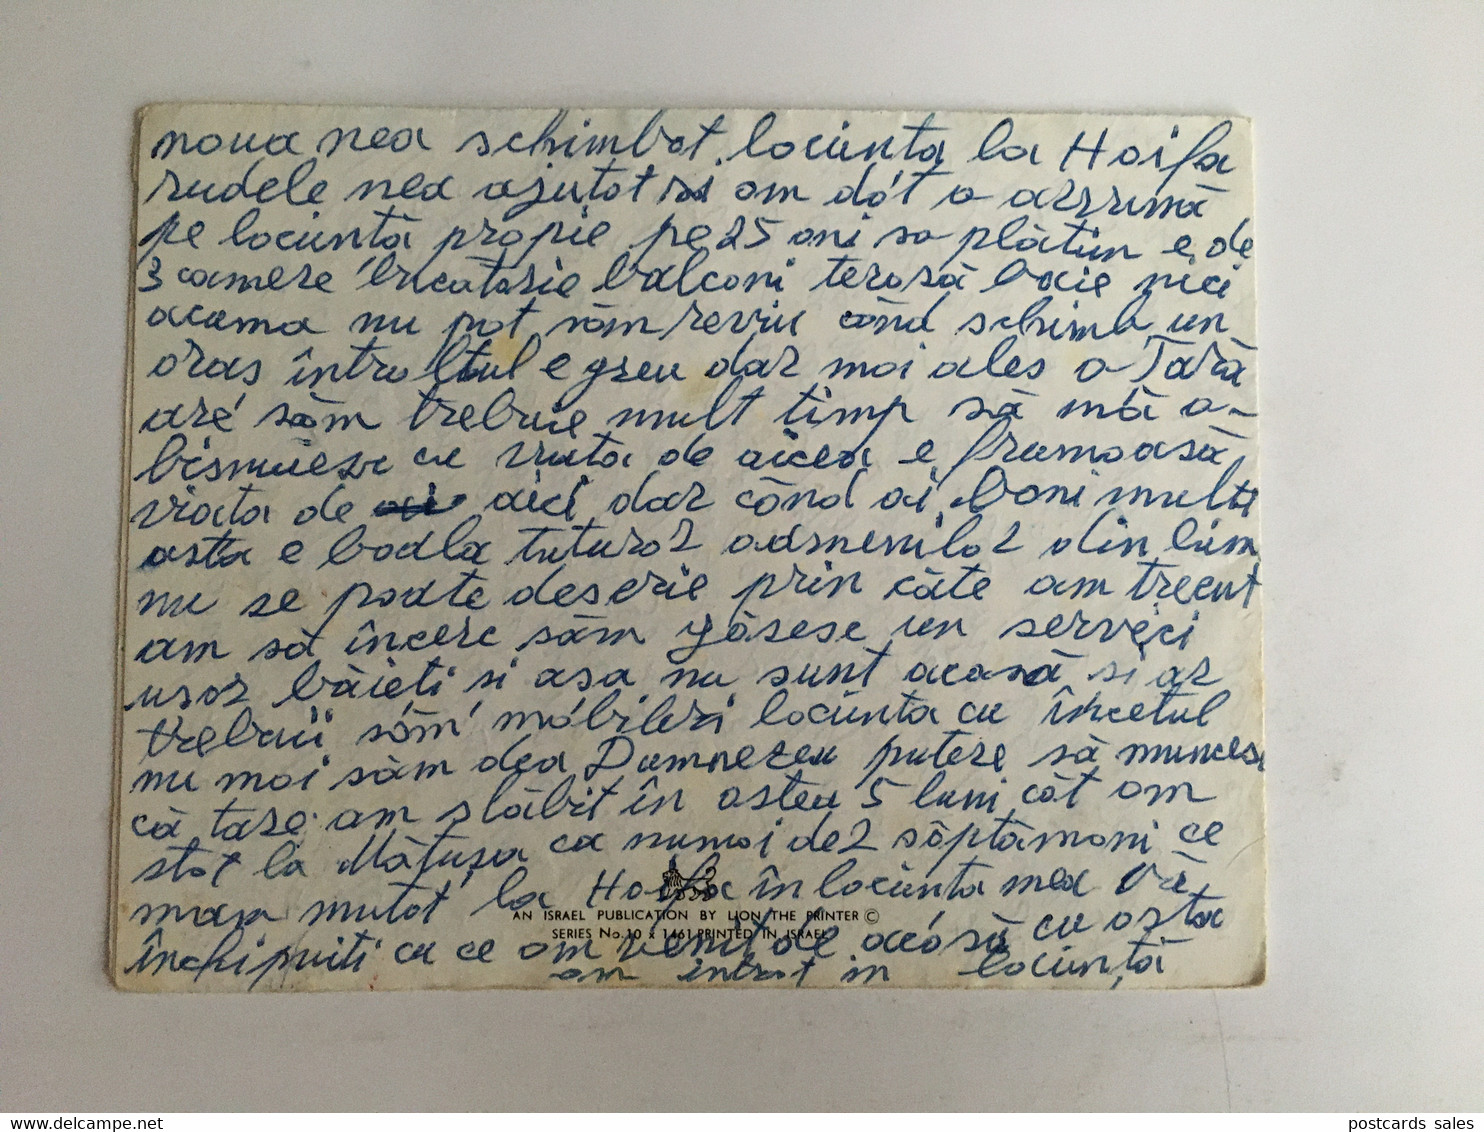 noua nea schimbat locuinta la Haifa
rudele nea ajutat si am dat o arzrumă
pe locuintă propie pe 25 ani sa plătim e de
3 camere bucatarie balconi terasă baie nici
acama nu pot săm reviu când schimb un
oras întraltul e greu dar mai ales o Tară
are săm trebuie mult timp să mă o-
bisnuiesc cu viata de aicea e frumoasă
viata de aici dar când ai bani multi
asta e boala tuturor oamenilor din lum
nu se poate descrie prin câte am trecut
am să încerc săm găsesc un servici
usor băieti si asa nu sunt acasă si ar
trebui săm mobilezi locuinta cu încetul
nu mai săm dea Dumnezeu putere să muncesc
că tare am slăbit în astea 5 luni cât am
stat la Mătușa ca numai de 2 săptămani ce
mam mutat la Haifa în locuinta mea Vă
închipuiti cu ce am venit de acasă cu asta
am intrat in locuință
AN ISRAEL PUBLICATION BY LION THE PRINTER ©
SERIES No. 10 x 1461 PRINTED IN ISRAEL
postcards sales
delcampe.net